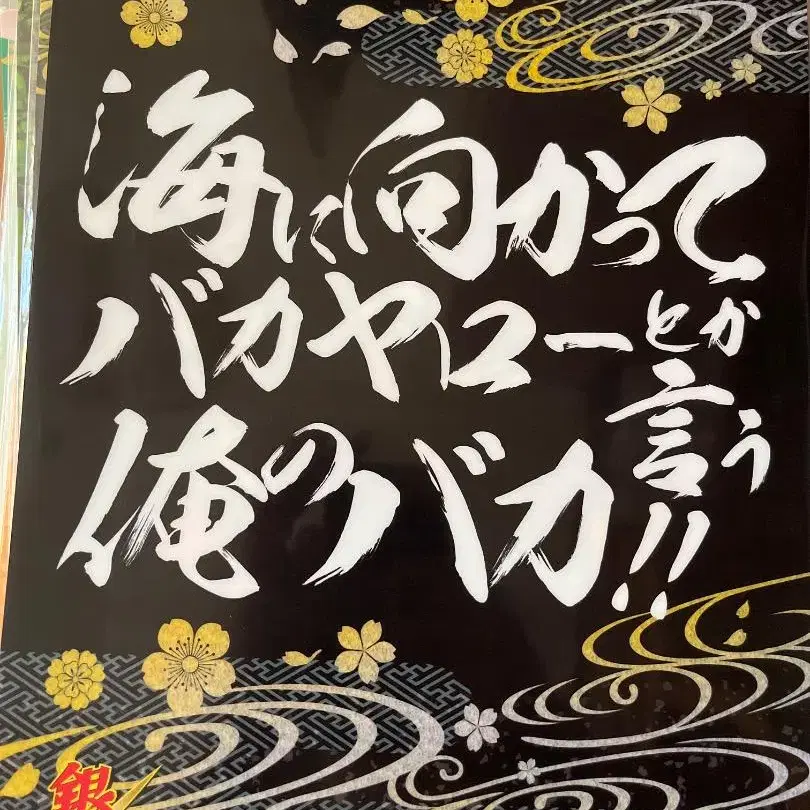 海に向かって
バカヤローとか言う
俺のバカ!!
銀